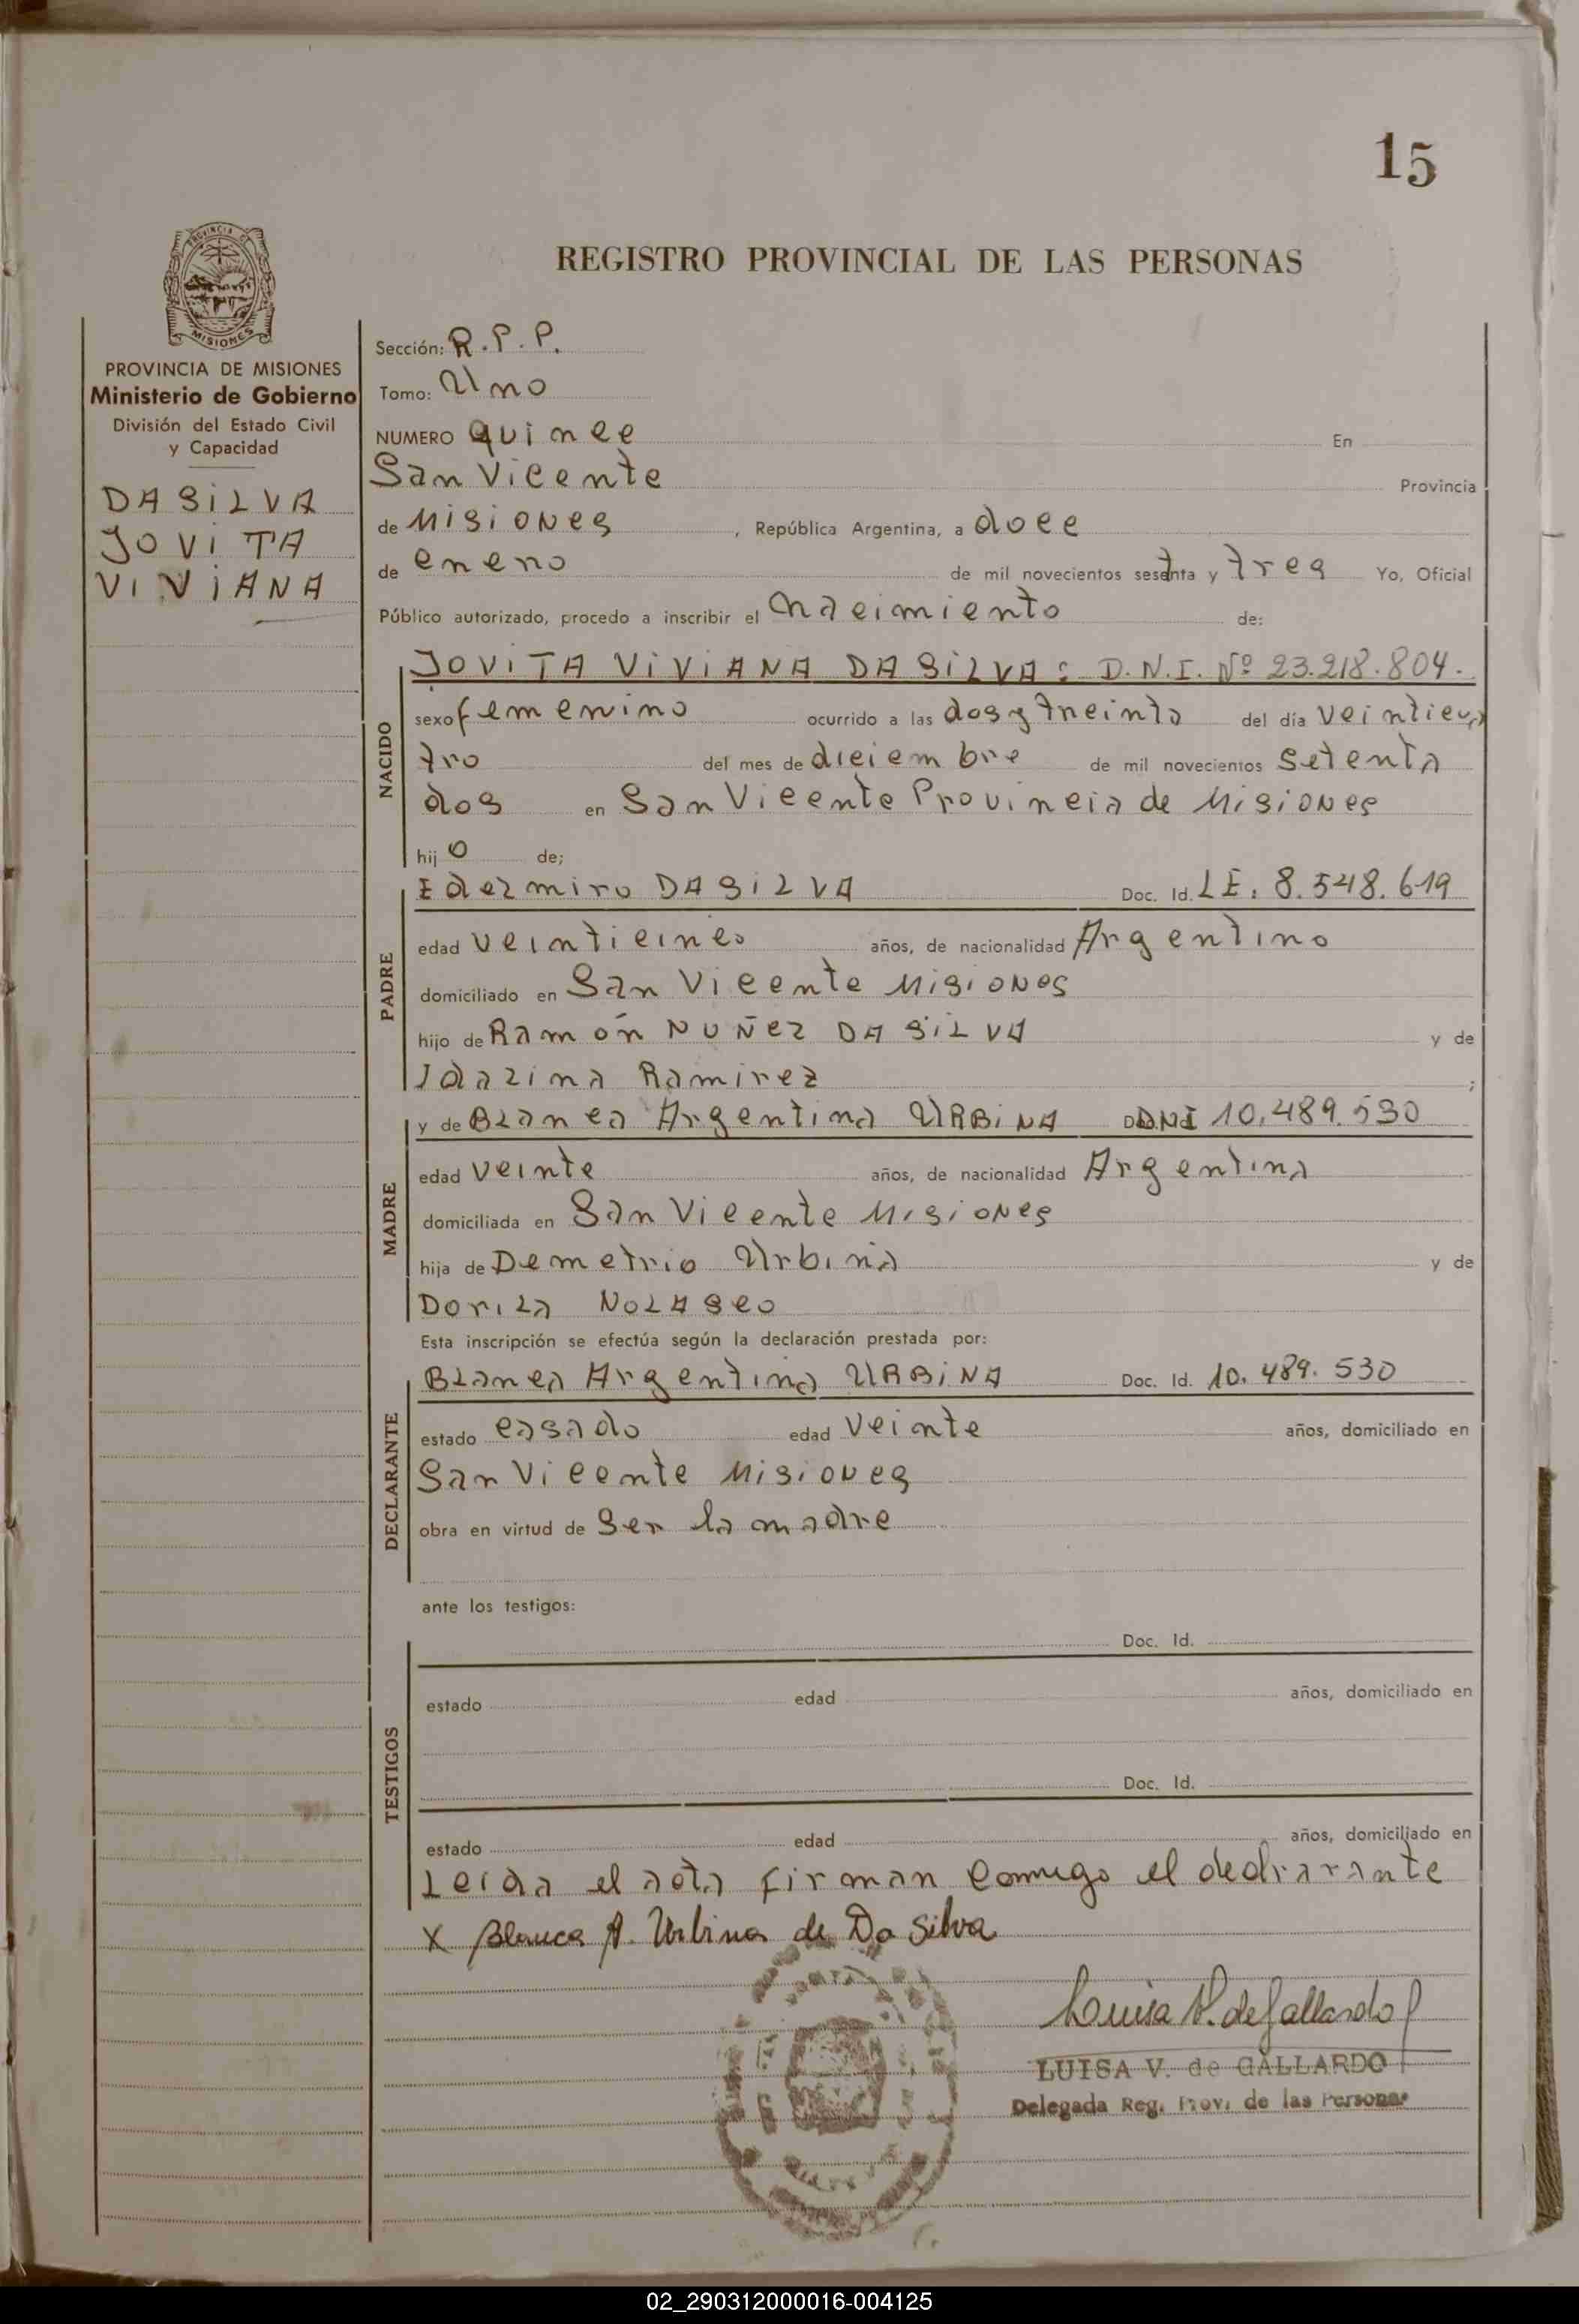 15
REGISTRO PROVINCIAL DE LAS PERSONAS
PROVINCIA DE MISIONES
Ministerio de Gobierno
División del Estado Civil
y Capacidad
DA SILVA
JOVITA
VIVIANA
Sección: R.P.P.
Tomo: Uno
NUMERO quince En
San Vicente Provincia
de Misiones, República Argentina, a doce
de enero de mil novecientos setenta y tres Yo, Oficial
Público autorizado, procedo a inscribir el nacimiento de:
NACIDO
JOVITA VIVIANA DA SILVA: D.N.I. Nº 23.218.804.
sexo femenino ocurrido a las dos y treinta del día veinticua
tro del mes de diciembre de mil novecientos setenta
dos en San Vicente Provincia de Misiones
hijo de;
PADRE
Edelmiro DA SILVA Doc. Id. LE. 8.548.619
edad veinticinco años, de nacionalidad Argentino
domiciliado en San Vicente Misiones
hijo de Ramón NUÑEZ DA SILVA y de
Idalina Ramirez ;
MADRE
y de Blanca Argentina URBINA DNI 10.489.530
edad veinte años, de nacionalidad Argentina
domiciliada en San Vicente Misiones
hija de Demetrio Urbina y de
Dorila NOLASCO
Esta inscripción se efectúa según la declaración prestada por:
DECLARANTE
Blanca Argentina URBINA Doc. Id. 10.489.530
estado casado edad veinte años, domiciliado en
San Vicente Misiones
obra en virtud de ser la madre
ante los testigos:
TESTIGOS
Doc. Id.
estado edad años, domiciliado en
Doc. Id.
estado edad años, domiciliado en
Leida el acta firman conmigo el declarante
X Blanca A. Urbina de Da Silva
Luisa V. de Gallardo
LUISA V. de GALLARDO
Delegada Reg. Prov. de las Personas
02_290312000016-004125